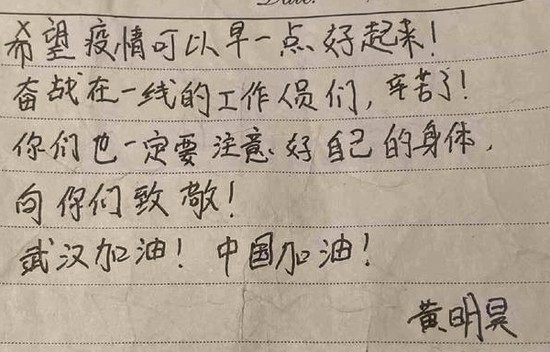 希望疫情可以早一点好起来！
奋战在一线的工作人员们，辛苦了！
你们也一定要注意好自己的身体，
向你们致敬！
武汉加油！中国加油！
黄明昊